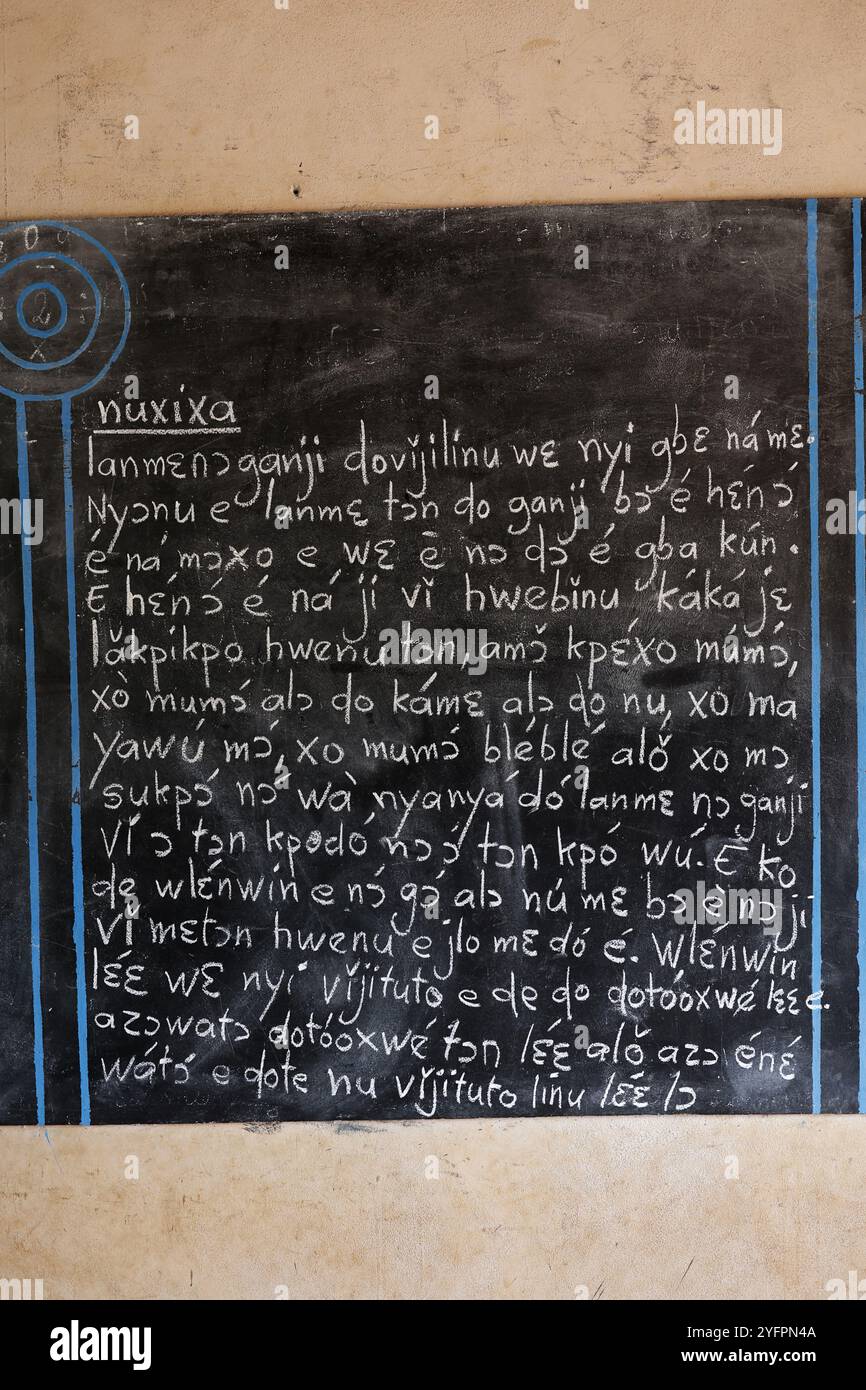 nuxixa
lanmɛnɔganji dovǐjilínu wɛ nyi gbɛ ná mɛ.
Nyɔnu e lanmɛ tɔn ɖo ganji bɔ é hɛ́n ɔ́
é ná mɔxo e wɛ ē nɔ ɖɔ é gba kún.
É hɛ́n ɔ́ é ná jí vǐ hwebǐnu káká jɛ
lǎkpíkpo hwenu tɔn, amɔ̌ kpɛ́xo múmɔ́,
xò mumɔ́ alɔ ɖo kámɛ alɔ ɖo nu, xo ma
yawú mɔ́, xo mumɔ́ bléblé alǒ xo mɔ
sukpɔ́ nɔ́ wà nyanyá dó lanmɛ nɔ ganji
ví ɔ tɔn kpodó nɔ ɔ́ tɔn kpó wú. É ko
ɖe wlɛ́nwín e nɔ́ gɔ́ alɔ nú mɛ bɔ é nɔ ji
vǐ mɛtɔn hwenu e jlo mɛ dó é. Wlɛ́nwín
lɛ́ɛ wɛ nyí vǐjituto e ɖe ɖo ɖotóoxwé lɛɛ e.
azɔwatɔ dotóoxwé tɔn lɛ́ɛ alǒ azɔ éné
wátɔ́ e ɖote nu vǐjituto línu lɛ́ɛ lɔ
0
2
x
alamy
Image ID: 2YFPN4A
www.alamy.com